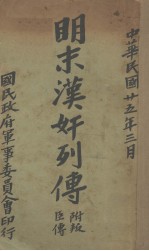 中華民國廿五年三月
明末漢奸列傳
附貳臣傳
國民政府軍事委員會印行